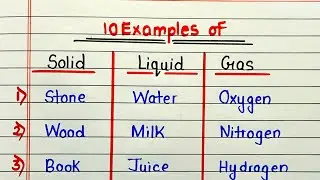 10 Examples of
Solid Liquid Gas
1) Stone Water Oxygen
2) Wood Milk Nitrogen
3) Book Juice Hydrogen